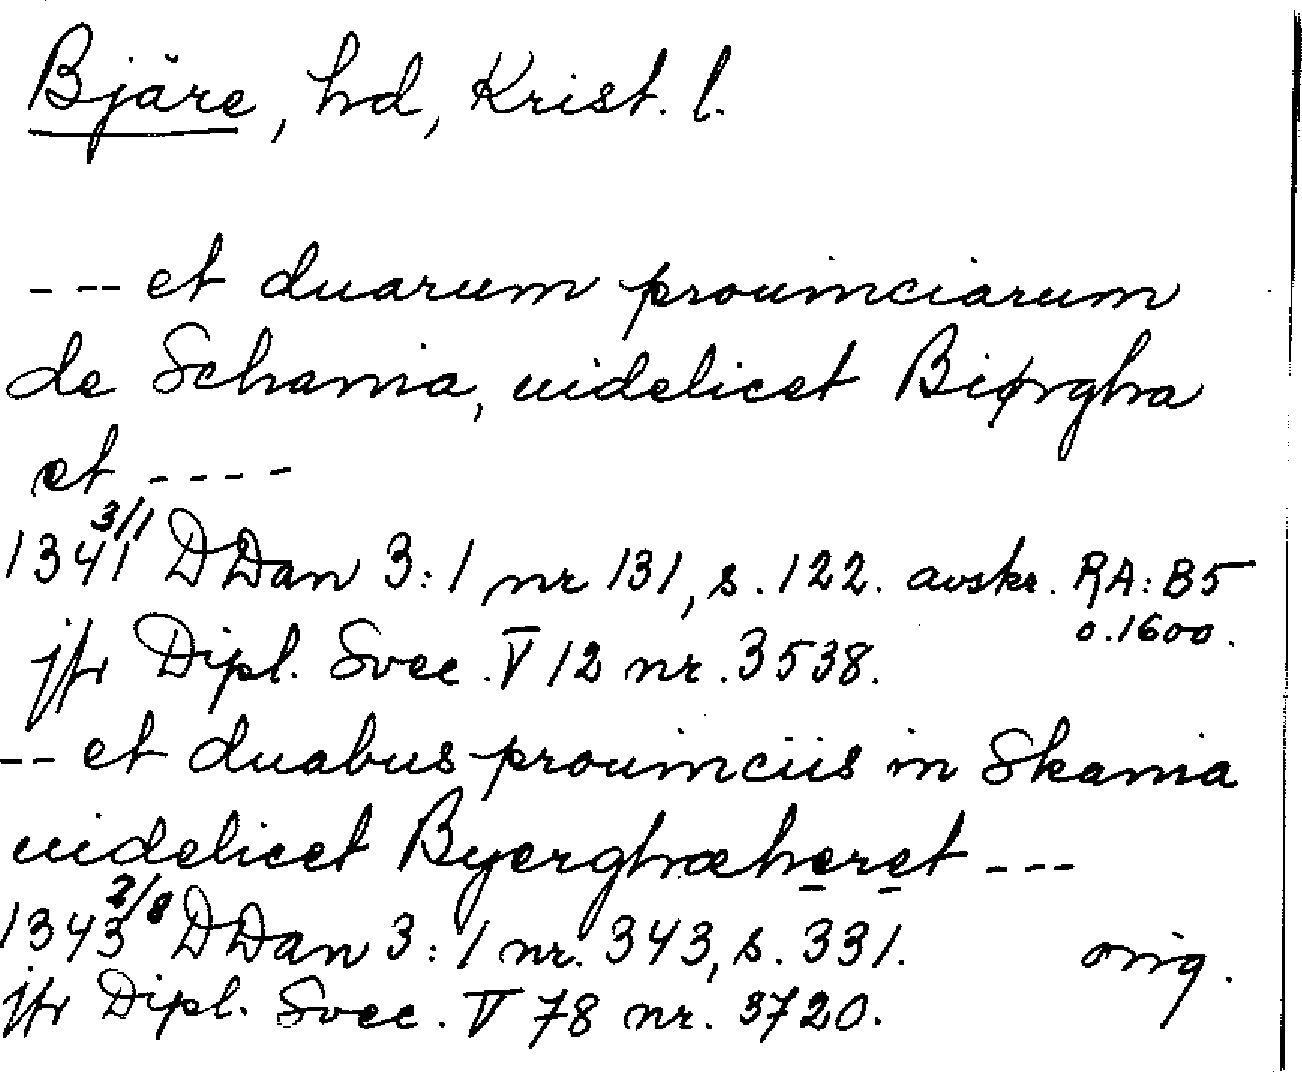 Bjäre, hd, Krist. l.
--- et duarum prouinciarum
de Schania, uidelicet Biørgha
et ----
1341 3/1 DDan 3:1 nr 131, s. 122. avskr. RA: B5
o. 1600.
jfr Dipl. Svec. V 12 nr. 3538.
-- et duabus prouinciis in Skania
uidelicet Byerghæheret ---
1343 2/8 DDan 3:1 nr. 343, s. 331. orig.
jfr Dipl. Svec. V 78 nr. 3720.